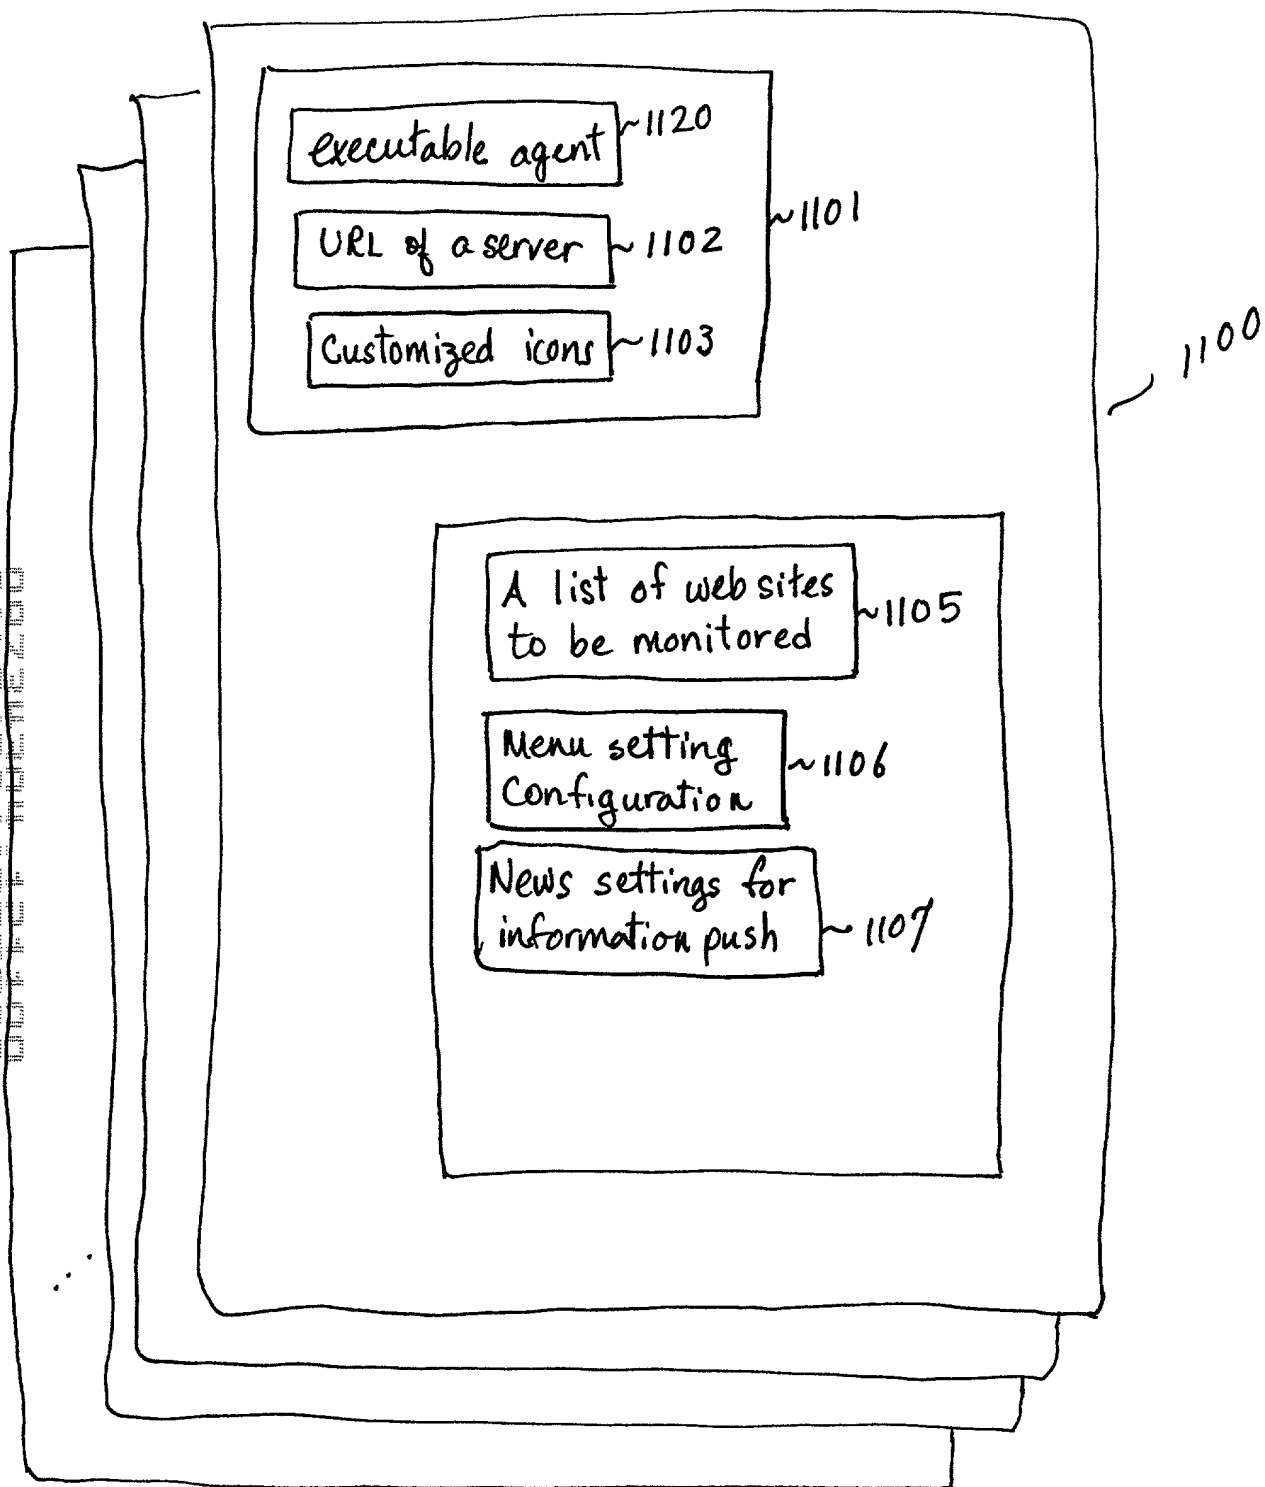 executable agent ~1120
URL of a server ~1102
~1101
Customized icons ~1103
1100
A list of web sites
to be monitored
~1105
Menu setting
Configuration
~1106
News settings for
information push
~1107